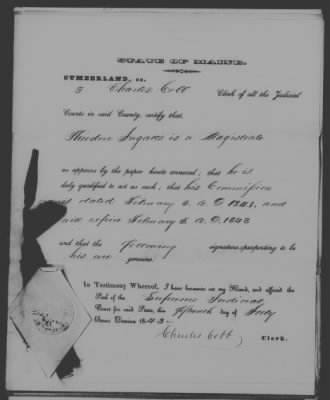 STATE OF MAINE.
CUMBERLAND, ss.
I Charles Cobb Clerk of all the Judicial
Courts in said County, certify that
Theodore Ingalls is a Magistrate
as appears by the paper hereto annexed; that he is
duly qualified to act as such; that his Commission
is dated February 5. A.D. 1841. and
expires February 5. A.D. 1848
and that the foregoing signature purporting to be
his are genuine.
In Testimony Whereof, I have hereunto set my Hand, and affixed the
Seal of the Supreme Judicial
Court for said State, this fifteenth day of July
Anno Domini 1843.
Charles Cobb Clerk.